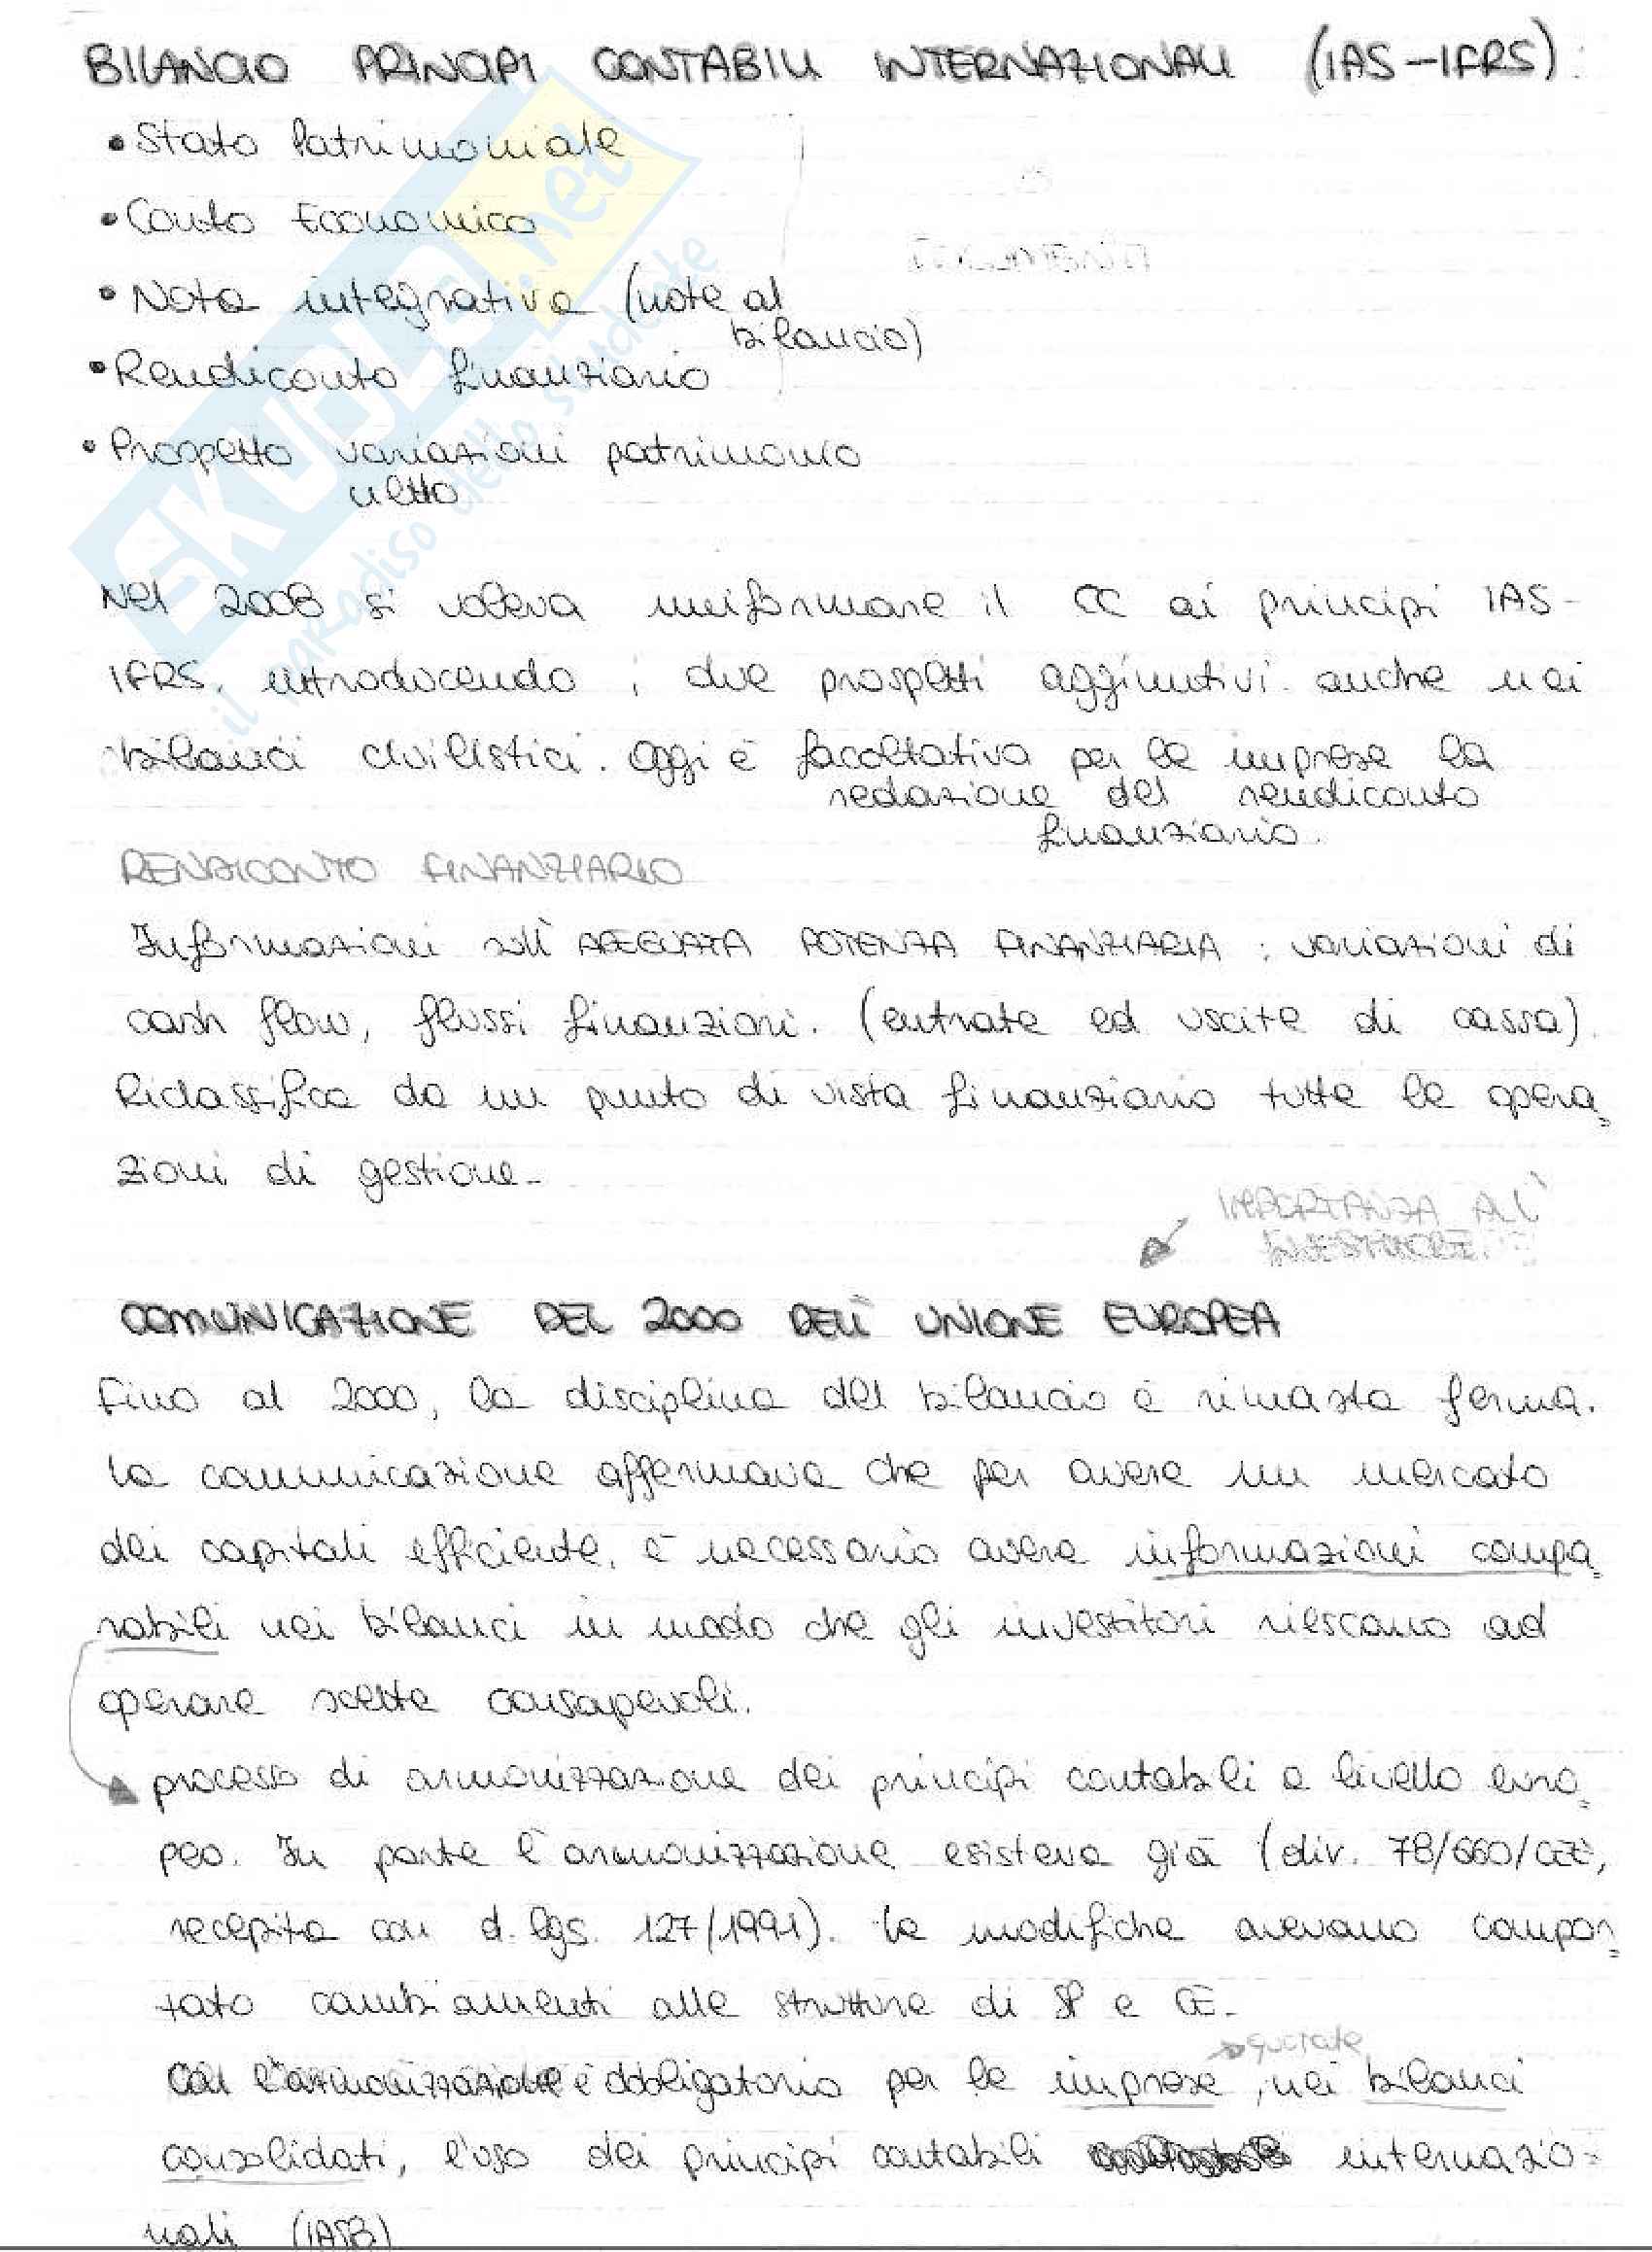 BILANCIO PRINCIPI CONTABILI INTERNAZIONALI (IAS-IFRS):
• Stato Patrimoniale
• Conto Economico
• Nota integrativa (note al
bilancio)
• Rendiconto finanziario
• Prospetto variazioni patrimonio
netto
SKUOLA.net
il paradiso dello studente
Nel 2008 si voleva uniformare il CC ai principi IAS-
IFRS, introducendo i due prospetti aggiuntivi anche nei
bilanci civilistici. Oggi è facoltativa per le imprese la
redazione del rendiconto
finanziario.
RENDICONTO FINANZIARIO
Informazioni sull' ADEGUATA POTENZA FINANZIARIA: variazioni di
cash flow, flussi finanziari. (entrate ed uscite di cassa).
Riclassifica da un punto di vista finanziario tutte le opera=
zioni di gestione.
IMPORTANZA ALL'
INVESTITORE.
COMUNICAZIONE DEL 2000 DELL' UNIONE EUROPEA
Fino al 2000, la disciplina del bilancio è rimasta ferma.
La comunicazione affermava che per avere un mercato
dei capitali efficiente, è necessario avere informazioni compa=
rabili nei bilanci in modo che gli investitori riescano ad
operare scelte consapevoli.
processo di armonizzazione dei principi contabili a livello euro=
peo. In parte l'armonizzazione esisteva già (dir. 78/660/CEE,
recepita con d.lgs. 127/1991). Le modifiche avevano compor=
tato cambiamenti alle strutture di SP e CE.
quotate
Con l'armonizzazione è obbligatorio per le imprese, nei bilanci
consolidati, l'uso dei principi contabili internazio=
nali (IASB)